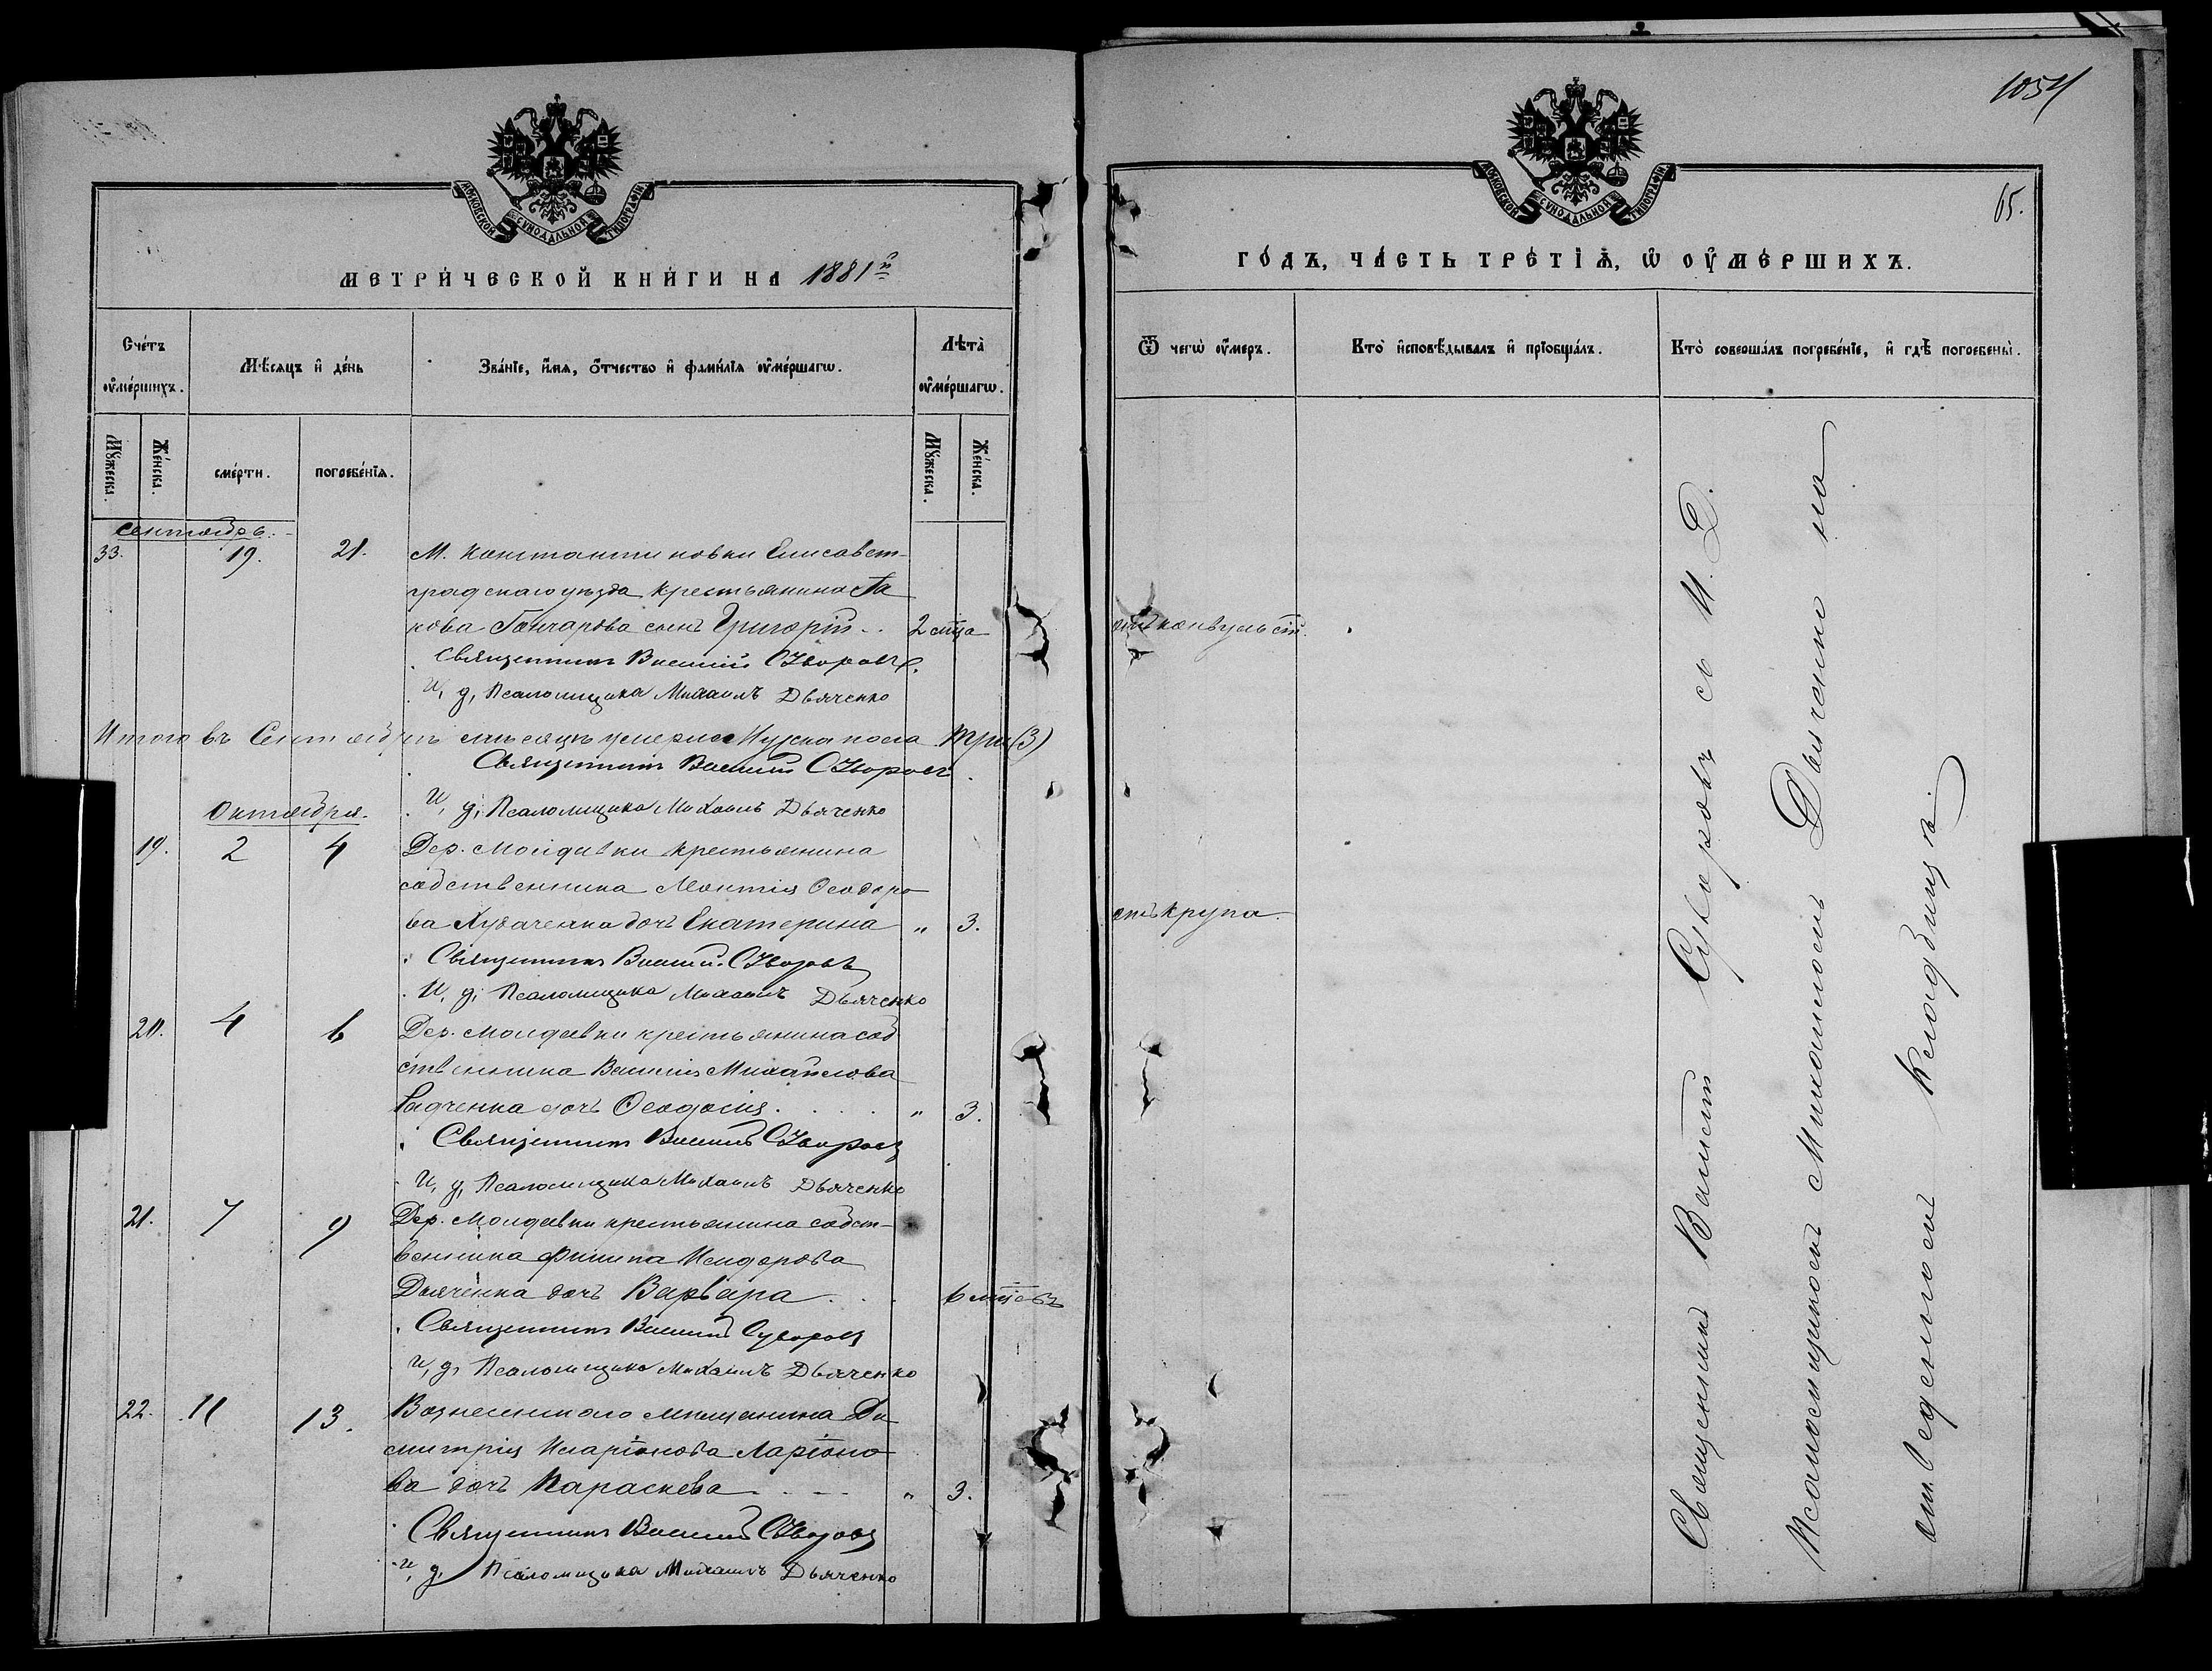 МОСКОВСКОЙ СѴНОДАЛЬНОЙ ТИПОГРАФІИ
МЕТРИ́ЧЕСКОЙ КНИ́ГИ НА 1881й
Сче́тъ ᲂу҆ме́ршихъ.
Мѣ́сяцъ и҆ де́нь
Зва́нїе, и҆́мя, ѻ҆́тчество и҆ фами́лїя ᲂу҆ме́ршагѡ.
Лѣта̀ ᲂу҆ме́ршагѡ.
Мꙋ́жеска.
Же́нска.
сме́рти.
погребе́нїѧ.
Мꙋ́жеска.
Же́нска.
Сентябрь.
33. 19. 21. М. Константиновки Елисавет-
градскаго уѣзда крестьянина Іа
кова Гончарова сынъ Григорій .. 2 мца
Священникъ Василій Суворовъ.
И, д, Псаломщика Михаилъ Дьяченко
Итого въ Сентябрѣ мѣсяцѣ умерло Мужска пола три (3)
Священникъ Василій Суворовъ
И, д, Псаломщика Михаилъ Дьяченко
Октября.
19. 2 4 Дер. Молдавки крестьянина
собственника Леонтія Ѳеодоро
ва дочь Екатерина " 3.
Священникъ Василій Суворовъ
И, д, Псаломщика Михаилъ Дьяченко
20. 4 6 Дер. Молдавки крестьянина соб
ственника Василія Михайлова
Радченка дочь Ѳеодосія . . . . " 3.
Священникъ Василій Суворовъ
И, д, Псаломщика Михаилъ Дьяченко
21. 7 9 Дер. Молдавки крестьянина собст-
венника Филипа Исидорова
Дьяченка дочь Варвара . . . 6 мцевъ
Священникъ Василій Суворовъ
И, д, Псаломщика Михаилъ Дьяченко
22. 11 13. Вознесенскаго мѣщанина Ди
митрія Иларіонова Ларіоно
ва дочь Параскева . - - - " 3.
Священникъ Василій Суворовъ
И, д, Псаломщика Михаилъ Дьяченко
1054
65.
МОСКОВСКОЙ СѴНОДАЛЬНОЙ ТИПОГРАФІИ
ГО́ДЪ, ЧА́СТЬ ТРЕ́ТЇѦ, Ѡ҆ ОУ҆МЕ́РШИХЪ.
Ѿ чегѡ̀ ᲂу҆́меръ.
Кто̀ и҆сповѣ́дывалъ и҆ прїобща́лъ.
Кто̀ соверша́лъ погребе́нїе, и҆ гдѣ̀ погребены̀.
отъ конвульсій.
отъ крупа.
Священникъ Василій Суворовъ съ И. Д.
Псаломщикомъ Михаиломъ Дьяченко на
отведенномъ кладбищѣ.